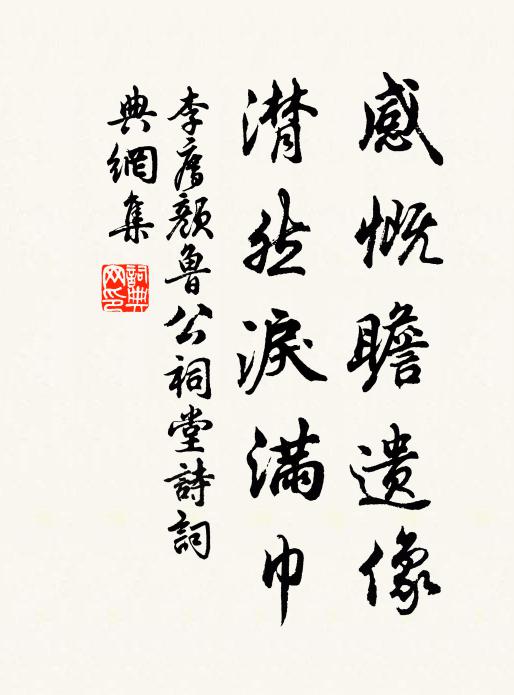 感慨瞻遺像
潸然淚滿巾
李廌顏魯公祠堂詩詞
典網集
詞典
网印